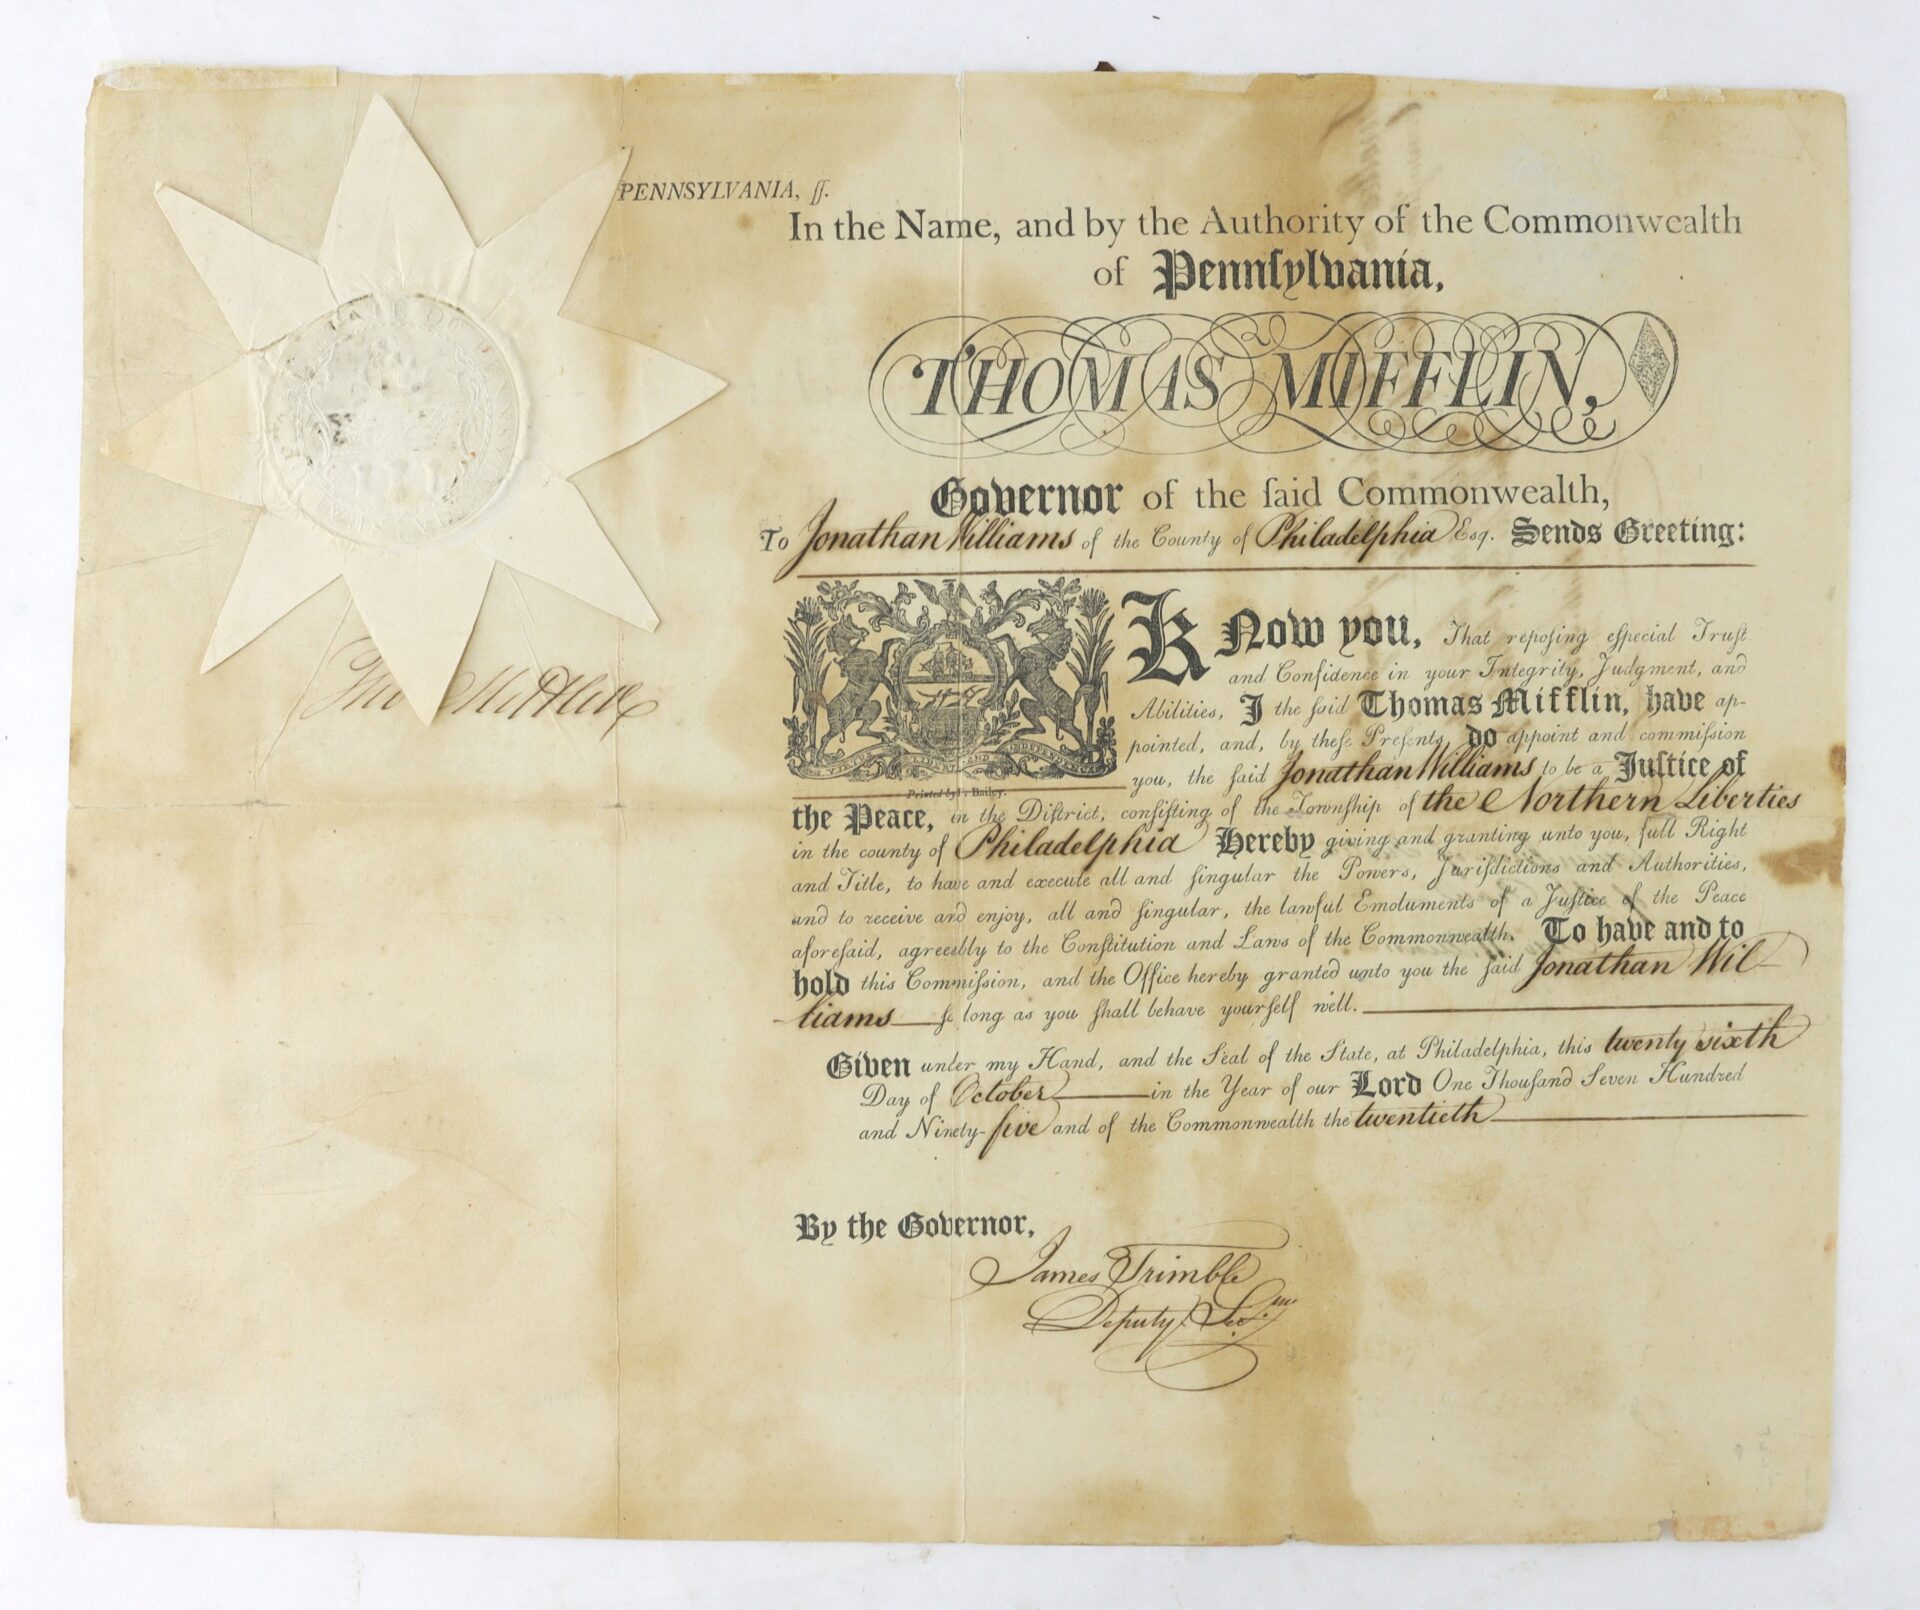 PENNSYLVANIA, ſſ.
In the Name, and by the Authority of the Commonwealth
of Pennſylvania,
THOMAS MIFFLIN,
Governor of the ſaid Commonwealth,
To Jonathan Williams of the County of Philadelphia Esq. Sends Greeting:
STATE OF
Know you, That repoſing eſpecial Truſt
and Confidence in your Integrity, Judgment, and
Abilities, I the ſaid Thomas Mifflin, have ap-
pointed, and, by theſe Preſents, do appoint and commiſſion
you, the ſaid Jonathan Williams to be a Juſtice of
VIRTUE LIBERTY AND INDEPENDENCE
Printed by F. Bailey.
the Peace, in the Diſtrict, conſiſting of the Townſhip of the Northern Liberties
in the county of Philadelphia Hereby giving and granting unto you, full Right
and Title, to have and execute all and ſingular the Powers, Juriſdictions and Authorities,
and to receive and enjoy, all and ſingular, the lawful Emoluments of a Juſtice of the Peace
aforeſaid, agreeably to the Conſtitution and Laws of the Commonwealth. To have and to
hold this Commiſſion, and the Office hereby granted unto you the ſaid Jonathan Wil-
-liams ſo long as you ſhall behave yourſelf well.
Given under my Hand, and the Seal of the State, at Philadelphia, this twenty sixth
Day of October in the Year of our Lord One Thouſand Seven Hundred
and Ninety-five and of the Commonwealth the twentieth
Tho Mifflin
By the Governor,
James Trimble
Deputy Secy.